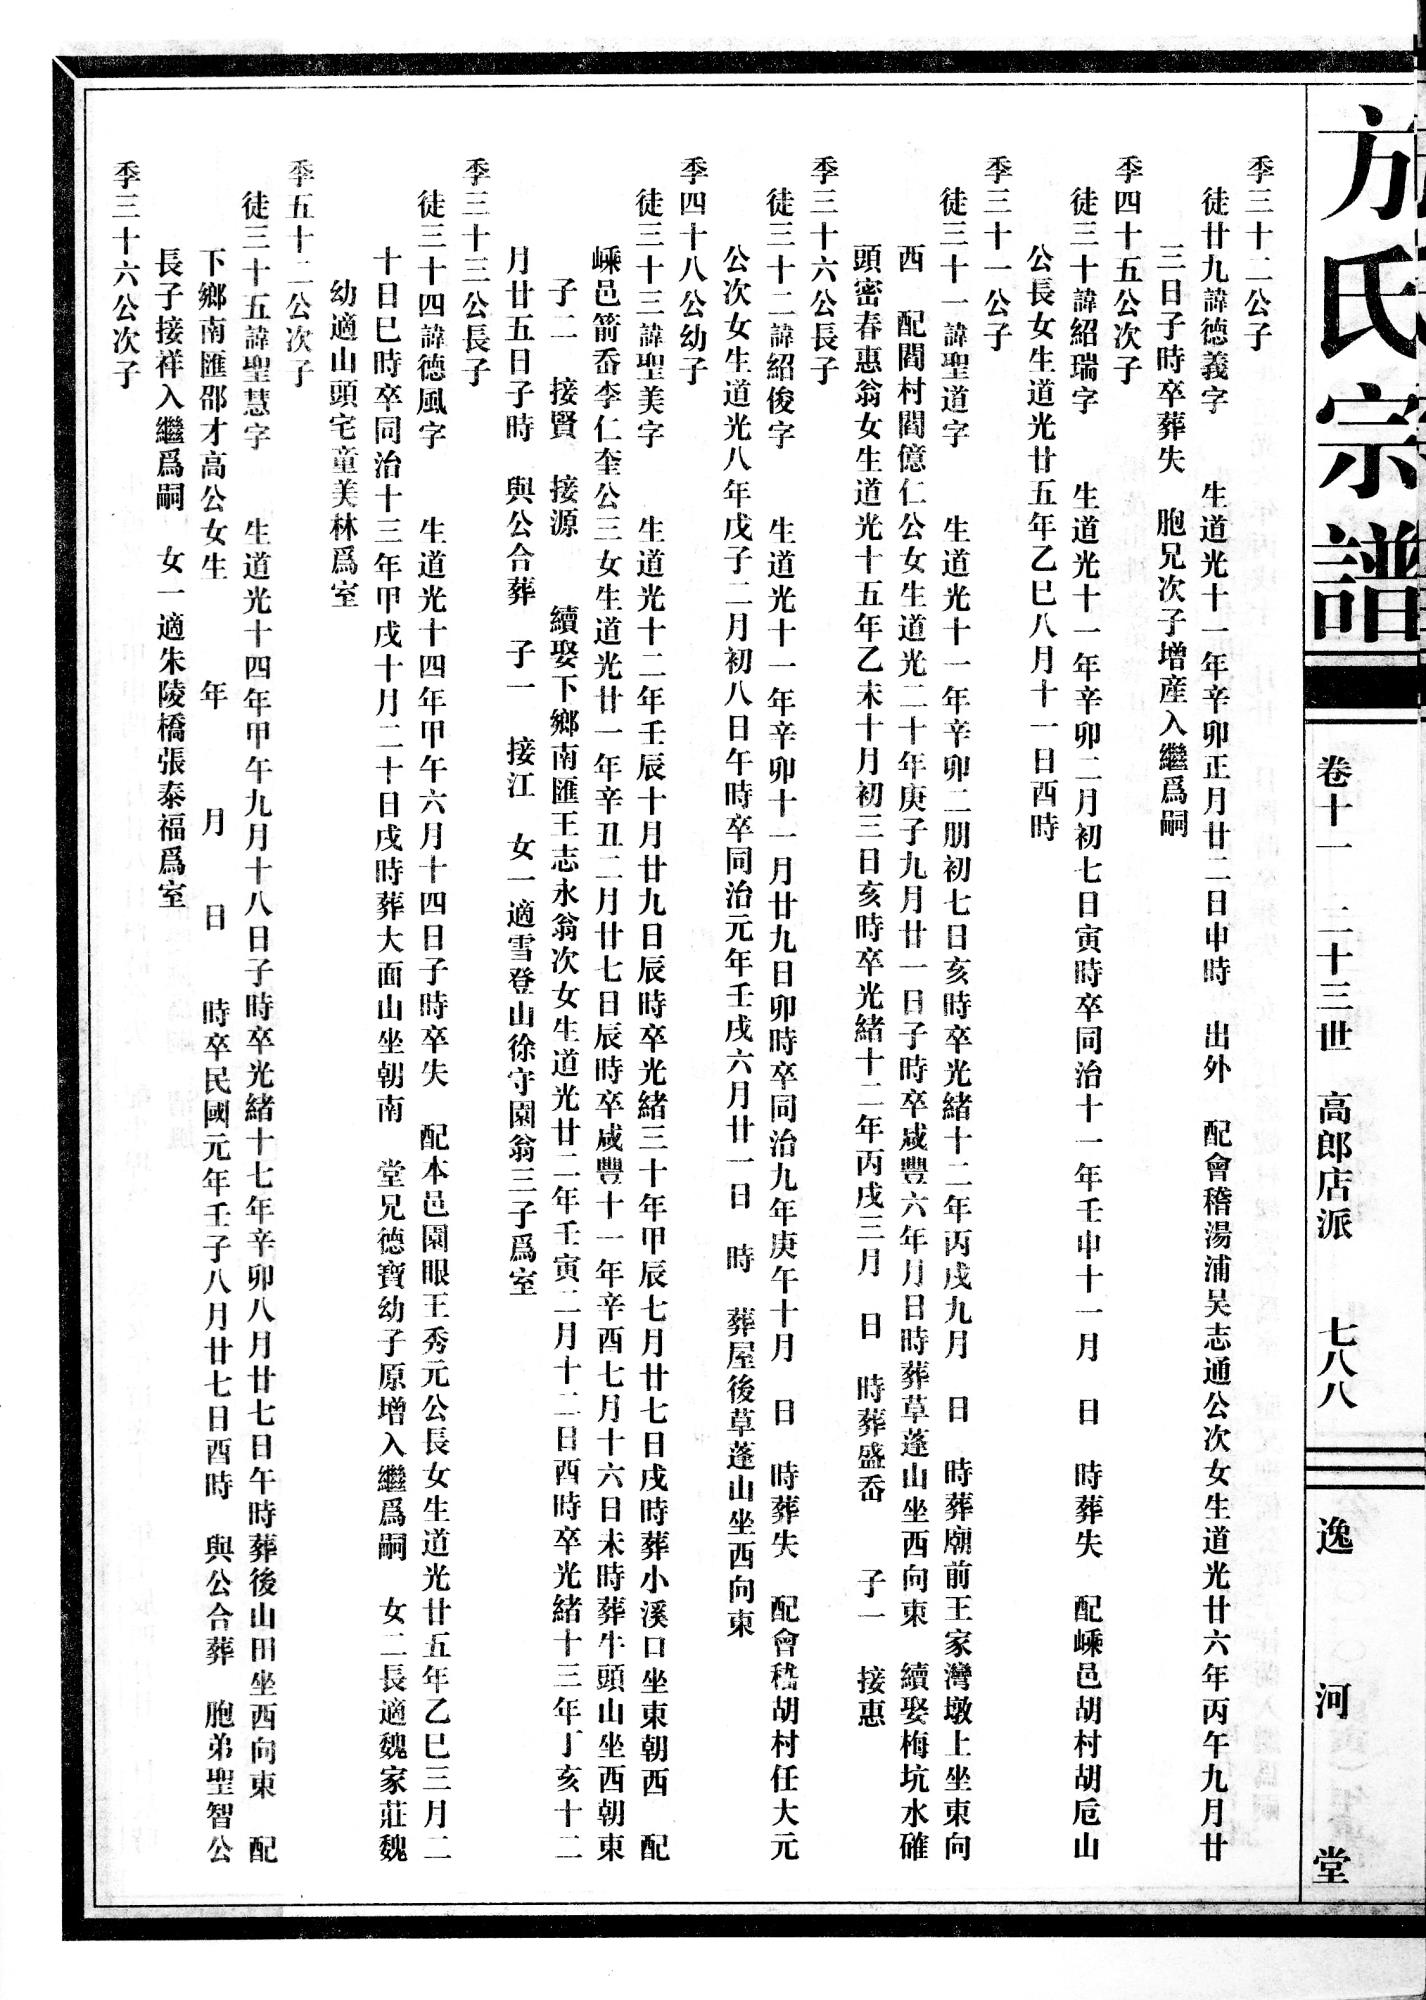 方氏宗譜
卷十一 二十三世 高郎店派 七八八
逸河堂
季三十二公子
徒廿九諱德義字 生道光十一年辛卯正月廿二日申時 出外 配會稽湯浦吴志通公次女生道光廿六年丙午九月廿
三日子時卒葬失 胞兄次子增産入繼爲嗣
季四十五公次子
徒三十諱紹瑞字 生道光十一年辛卯二月初七日寅時卒同治十一年壬申十一月 日 時葬失 配嵊邑胡村胡卮山
公長女生道光廿五年乙巳八月十一日酉時
季三十一公子
徒三十一諱聖道字 生道光十一年辛卯二朋初七日亥時卒光緒十二年丙戌九月 日 時葬廟前王家灣墩上坐東向
西 配閻村閻億仁公女生道光二十年庚子九月廿一日子時卒咸豐六年月日時葬草蓬山坐西向東 續娶梅坑水確
頭密春惠翁女生道光十五年乙未十月初三日亥時卒光緒十二年丙戌三月 日 時葬盛岙 子一 接惠
季三十六公長子
徒三十二諱紹俊字 生道光十一年辛卯十一月廿九日卯時卒同治九年庚午十月 日 時葬失 配會稽胡村任大元
公次女生道光八年戊子二月初八日午時卒同治元年壬戌六月廿一日 時 葬屋後草蓬山坐西向東
季四十八公幼子
徒三十三諱聖美字 生道光十二年壬辰十月廿九日辰時卒光緒三十年甲辰七月廿七日戌時葬小溪口坐東朝西 配
嵊邑箭岙李仁奎公三女生道光廿一年辛丑二月廿七日辰時卒咸豐十一年辛酉七月十六日未時葬牛頭山坐西朝東
子二 接賢 接源 續娶下鄉南匯王志永翁次女生道光廿二年壬寅二月十二日酉時卒光緒十三年丁亥十二
月廿五日子時 與公合葬 子一 接江 女一適雪登山徐守園翁三子爲室
季三十三公長子
徒三十四諱德風字 生道光十四年甲午六月十四日子時卒失 配本邑園眼王秀元公長女生道光廿五年乙巳三月二
十日巳時卒同治十三年甲戌十月二十日戌時葬大面山坐朝南 堂兄德寶幼子原增入繼爲嗣 女二長適魏家莊魏
幼適山頭宅童美林爲室
季五十二公次子
徒三十五諱聖慧字 生道光十四年甲午九月十八日子時卒光緒十七年辛卯八月廿七日午時葬後山田坐西向東 配
下鄉南匯邵才高公女生 年 月 日 時卒民國元年壬子八月廿七日酉時 與公合葬 胞弟聖智公
長子接祥入繼爲嗣 女一適朱陵橋張泰福爲室
季三十六公次子